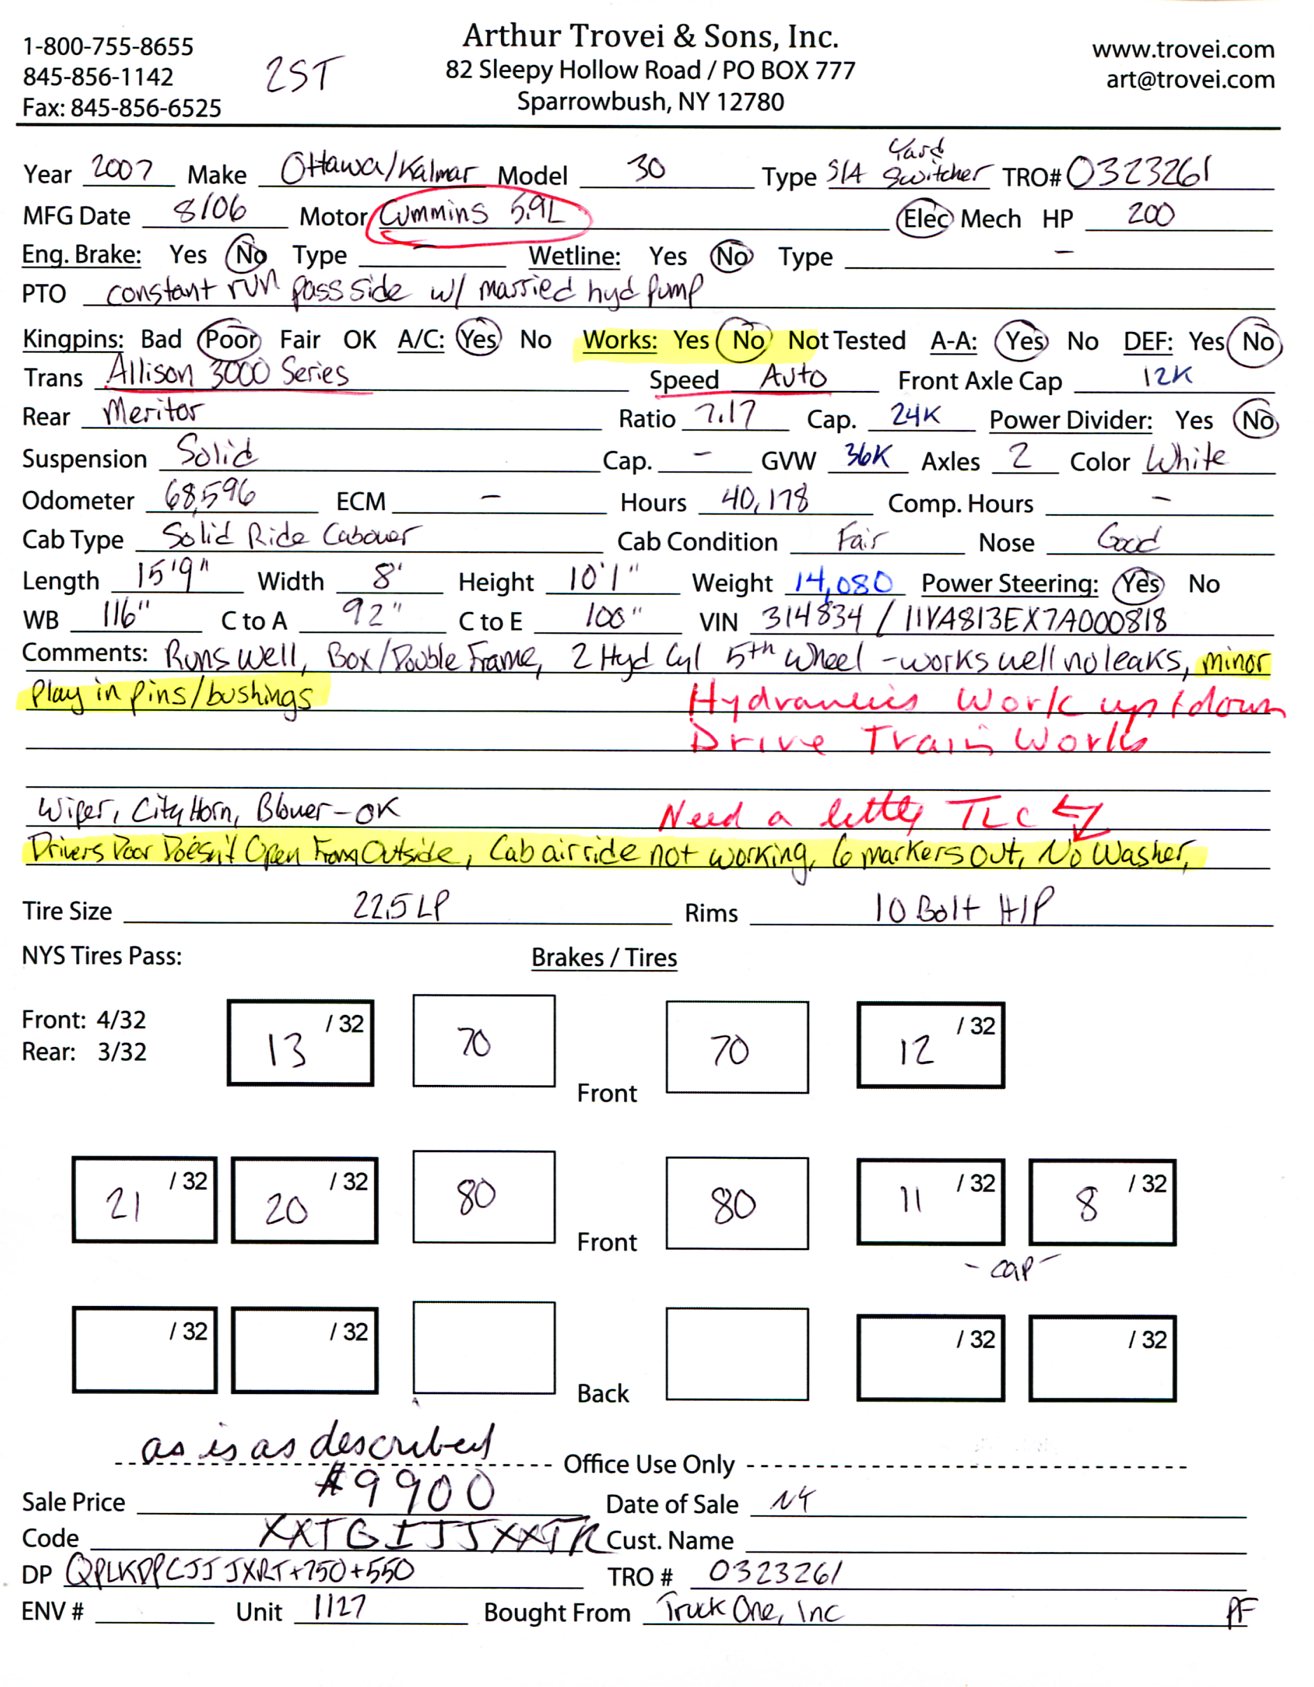 Arthur Trovei & Sons, Inc.
1-800-755-8655
845-856-1142 2ST
Fax: 845-856-6525
82 Sleepy Hollow Road / PO BOX 777
Sparrowbush, NY 12780
www.trovei.com
art@trovei.com
Year 2007 Make Ottawa/Kalmar Model 30 Type S/A Yard Switcher TRO# 0323261
MFG Date 8/06 Motor Cummins 5.9L Elec Mech HP 200
Eng. Brake: Yes No Type Wetline: Yes No Type -
PTO constant run pass side w/ married hyd pump
Kingpins: Bad Poor Fair OK A/C: Yes No Works: Yes No Not Tested A-A: Yes No DEF: Yes No
Trans Allison 3000 Series Speed Auto Front Axle Cap 12K
Rear Meritor Ratio 7.17 Cap. 24K Power Divider: Yes No
Suspension Solid Cap. - GVW 36K Axles 2 Color White
Odometer 68,596 ECM - Hours 40,178 Comp. Hours -
Cab Type Solid Ride Cabover Cab Condition Fair Nose Good
Length 15'9" Width 8' Height 10'1" Weight 14,080 Power Steering: Yes No
WB 116" C to A 92" C to E 100" VIN 314834 / 11VA813EX7A000818
Comments: Runs well, Box/Double Frame, 2 Hyd Cyl 5th Wheel - works well no leaks, minor
Play in pins/bushings Hydraulics Work up/down
Drive Train Works
Wiper, City Horn, Blower - OK Need a little TLC
Drivers Door Doesn't Open From Outside, Cab air ride not working, 6 markers out, No Washer,
Tire Size 22.5 LP Rims 10 Bolt H/P
NYS Tires Pass: Brakes / Tires
Front: 4/32
Rear: 3/32
13 /32 70 Front 70 12 /32
21 /32 20 /32 80 Front 80 11 /32 8 /32
- cap -
/32 /32 Back /32 /32
as is as described Office Use Only
Sale Price $9900 Date of Sale NY
Code XXTGIJJXXTR Cust. Name
DP QPLKDPCJJJXRT+750+550 TRO # 0323261
ENV # Unit 1127 Bought From Truck One, Inc PF